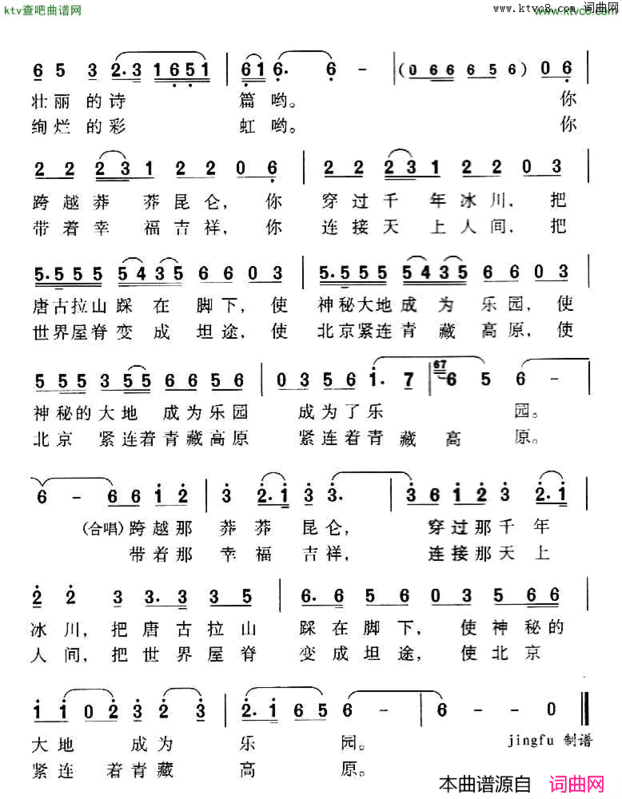 ktv查吧曲谱网
www.ktvc8.com 词曲网
www.ktvc8.com
6 5 3 2·3 1651 | 61 6· 6 | 6 - (0 6 6 6 5 6) | 0 6 |
壮丽的诗 篇哟。 你
绚烂的彩 虹哟。 你
2 2 2 3 1 2 2 0 6 | 2 2 2 3 1 2 2 0 3 |
跨越莽 莽昆仑，你 穿过千 年冰川，把
带着幸 福吉祥，你 连接天 上人间，把
5·555 5435 6 6 0 3 | 5·555 5435 6 6 0 3 |
唐古拉山踩 在 脚下，使 神秘大地成 为 乐园，使
世界屋脊变 成 坦途，使 北京紧连青 藏 高原，使
5 5 5 3 5 5 6 6 5 6 | 0 3 5 6 1· 7 | 67 6 5 6 - |
神秘的大地 成为乐园 成为了乐 园。
北京 紧连着青藏高原 紧连着青 藏 高 原。
6 - 6 6 1 2 | 3 2·1 3 3· | 3 6 1 2 3 2·1 |
(合唱)跨越那 莽莽 昆仑， 穿过那千年
带着那 幸福 吉祥， 连接那天上
2 2 3 3· 3 3 5 | 6· 6 5 6 0 3 5 6 6 |
冰川，把唐古拉山 踩在脚下，使神秘的
人间，把世界屋脊 变成坦途，使北京
1 1 0 2 3 2 3 | 2·1 6 5 6 - | 6 - - 0 ‖
大地 成为 乐 园。
jingfu 制谱
紧连 着青藏 高 原。
本曲谱源自 词曲网